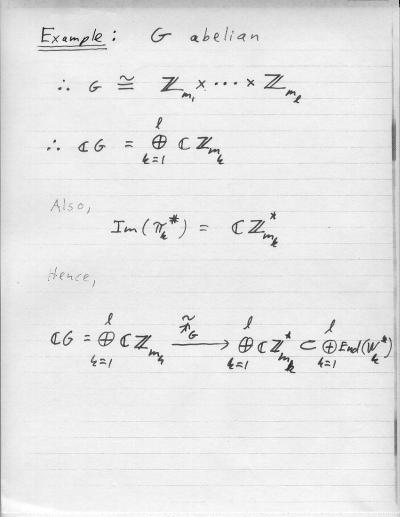 Example: G abelian
∴ G ≅ ℤ_{m_1} × ··· × ℤ_{m_l}
∴ ℂG = ⊕_{k=1}^{l} ℂℤ_{m_k}
Also,
Im(π_k^#) = ℂℤ_{m_k}^*
Hence,
ℂG = ⊕_{k=1}^{l} ℂℤ_{m_k} \xrightarrow{\tilde{π}_G} ⊕_{k=1}^{l} ℂℤ_{m_k}^* ⊂ ⊕_{k=1}^{l} End(W_k^*)